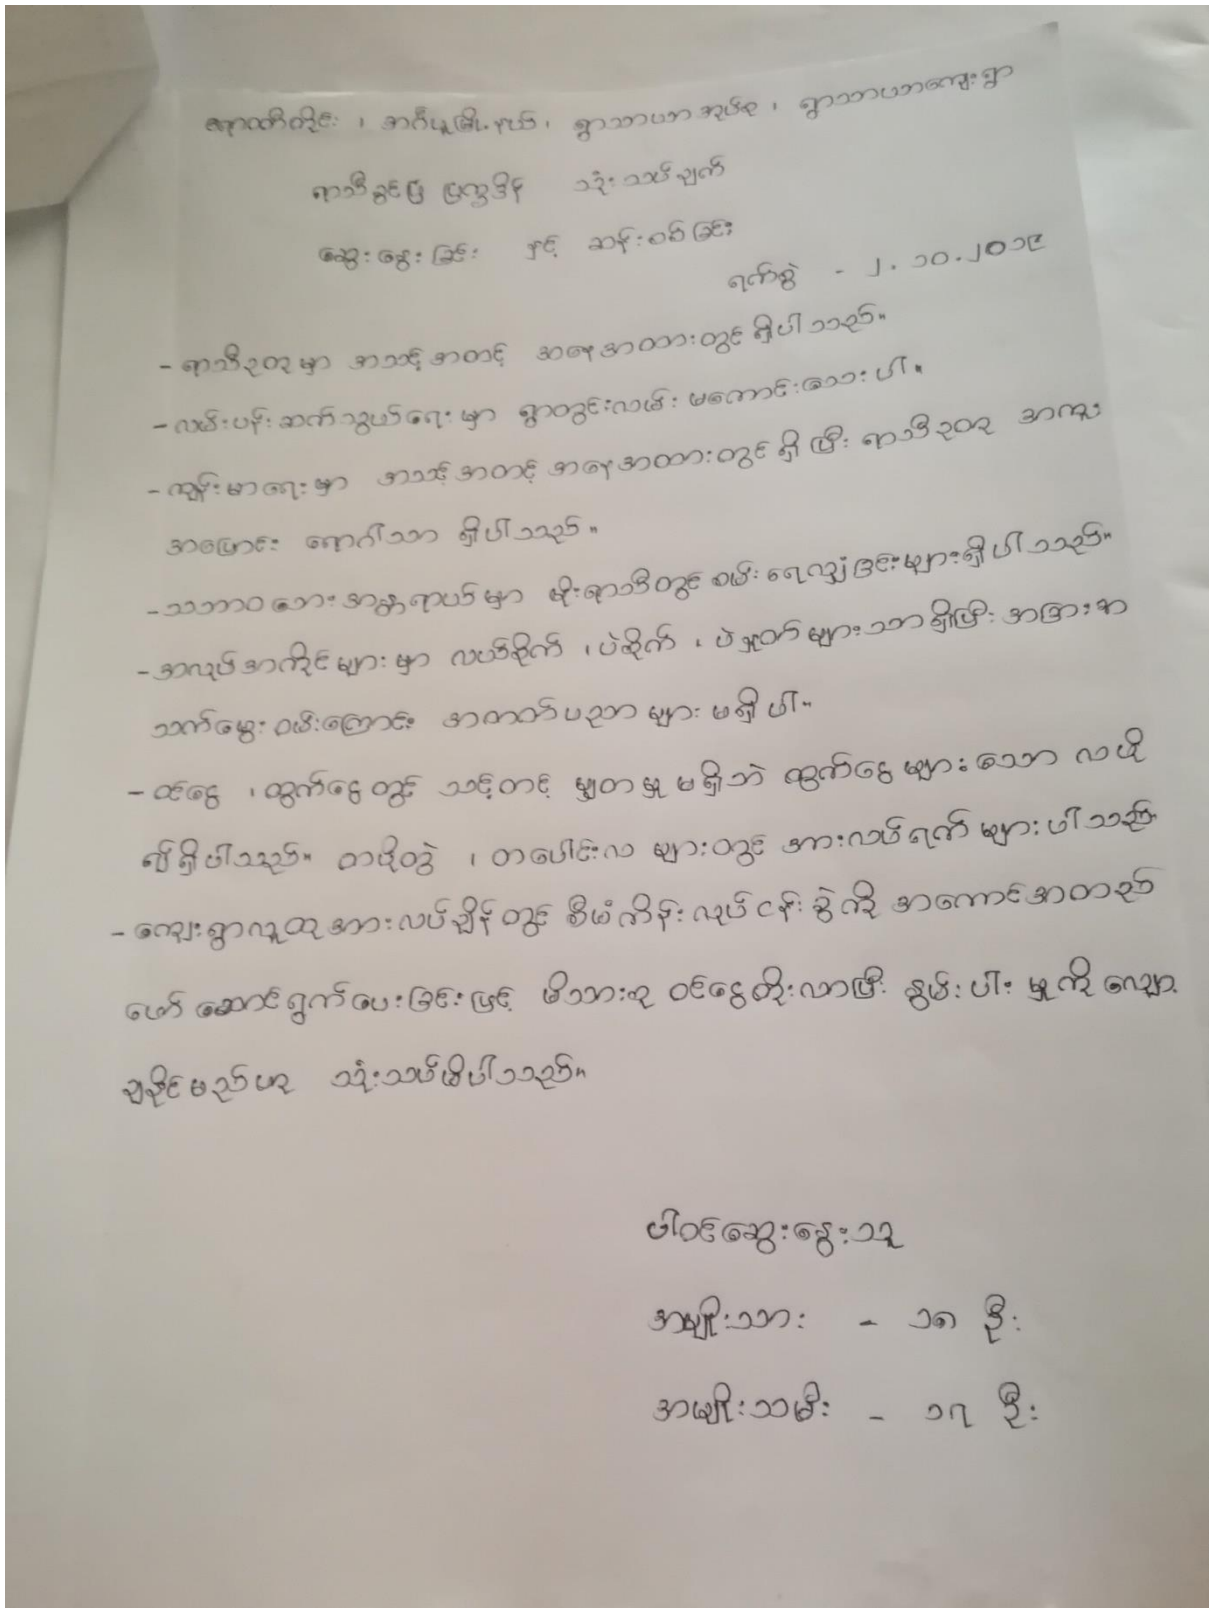 ဧရာဝတီတိုင်း ၊ အင်္ဂပူမြို့နယ်၊ ရွာသာယာအုပ်စု ၊ ရွာသာယာကျေးရွာ
ရာသီခွင်ပြ ပြက္ခဒိန် သုံးသပ်ချက်
ဆွေးနွေးခြင်း နှင့် ဆန်းစစ်ခြင်း
ရက်စွဲ - ၂.၁၀.၂၀၁၉
- ရာသီဥတုမှာ အသင့်အတင့် အနေအထားတွင် ရှိပါသည်။
- လမ်းပန်းဆက်သွယ်ရေးမှာ ရွာတွင်းလမ်း မကောင်းသေးပါ။
- ကျန်းမာရေးမှာ အသင့်အတင့်အနေအထားတွင်ရှိပြီး ရာသီဥတု အကူး
အပြောင်း ရောဂါသာ ရှိပါသည်။
- သဘာဝဘေးအန္တရာယ်မှာ မိုးရာသီတွင် စမ်းရေလျှံခြင်းများရှိပါသည်။
- အလုပ်အကိုင်များမှာ လယ်စိုက် ၊ ပဲစိုက် ၊ ပဲနှုတ်များသာရှိပြီး အခြားအာ
သက်မွေးဝမ်းကြောင်း အတတ်ပညာများ မရှိပါ။
- ဝင်ငွေ ၊ ထွက်ငွေတွင် သင့်တင့်မျှတမှုမရှိဘဲ ထွက်ငွေများသော လဟို
၍ရှိပါသည်။ တပို့တွဲ ၊ တပေါင်းလများတွင် အားလပ်ရက်များပါသည်။
- ကျေးရွာလူထုအားလပ်ချိန်တွင် စီမံကိန်းလုပ်ငန်းခွဲကို အကောင်အထည်
ဖော်ဆောင်ရွက်ပေးခြင်းဖြင့် မိသားစုဝင်ငွေတိုးလာပြီး နွမ်းပါးမှုကိုလျှော့
ချနိုင်မည်ဟု သုံးသပ်မိပါသည်။
ပါဝင်ဆွေးနွေးသူ
အမျိုးသား - ၁၈ ဦး
အမျိုးသမီး - ၁၇ ဦး